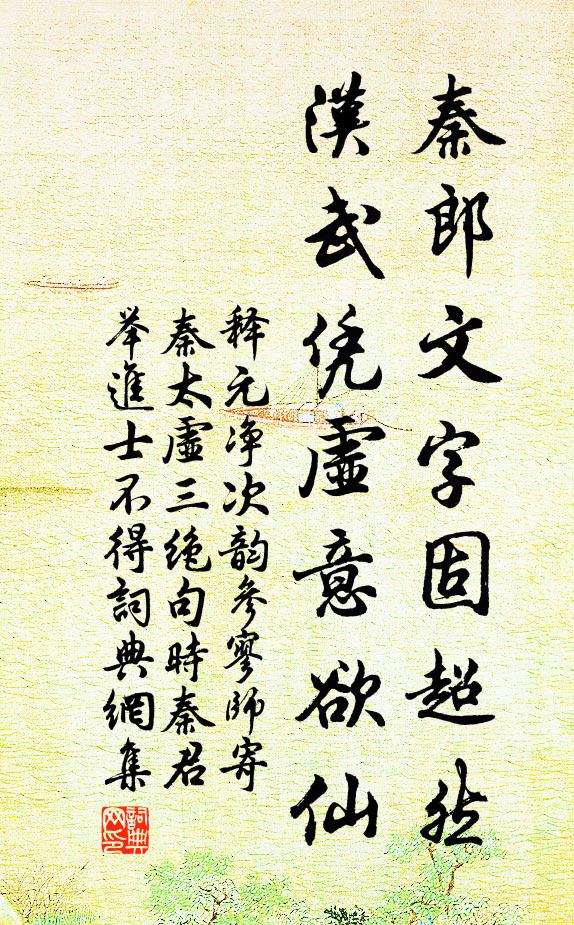 秦郎文字固超然
漢武凭虛意欲仙
释元净次韵参寥师寄
秦太虛三绝句時秦君
举進士不得詞典網集
詞典
网印